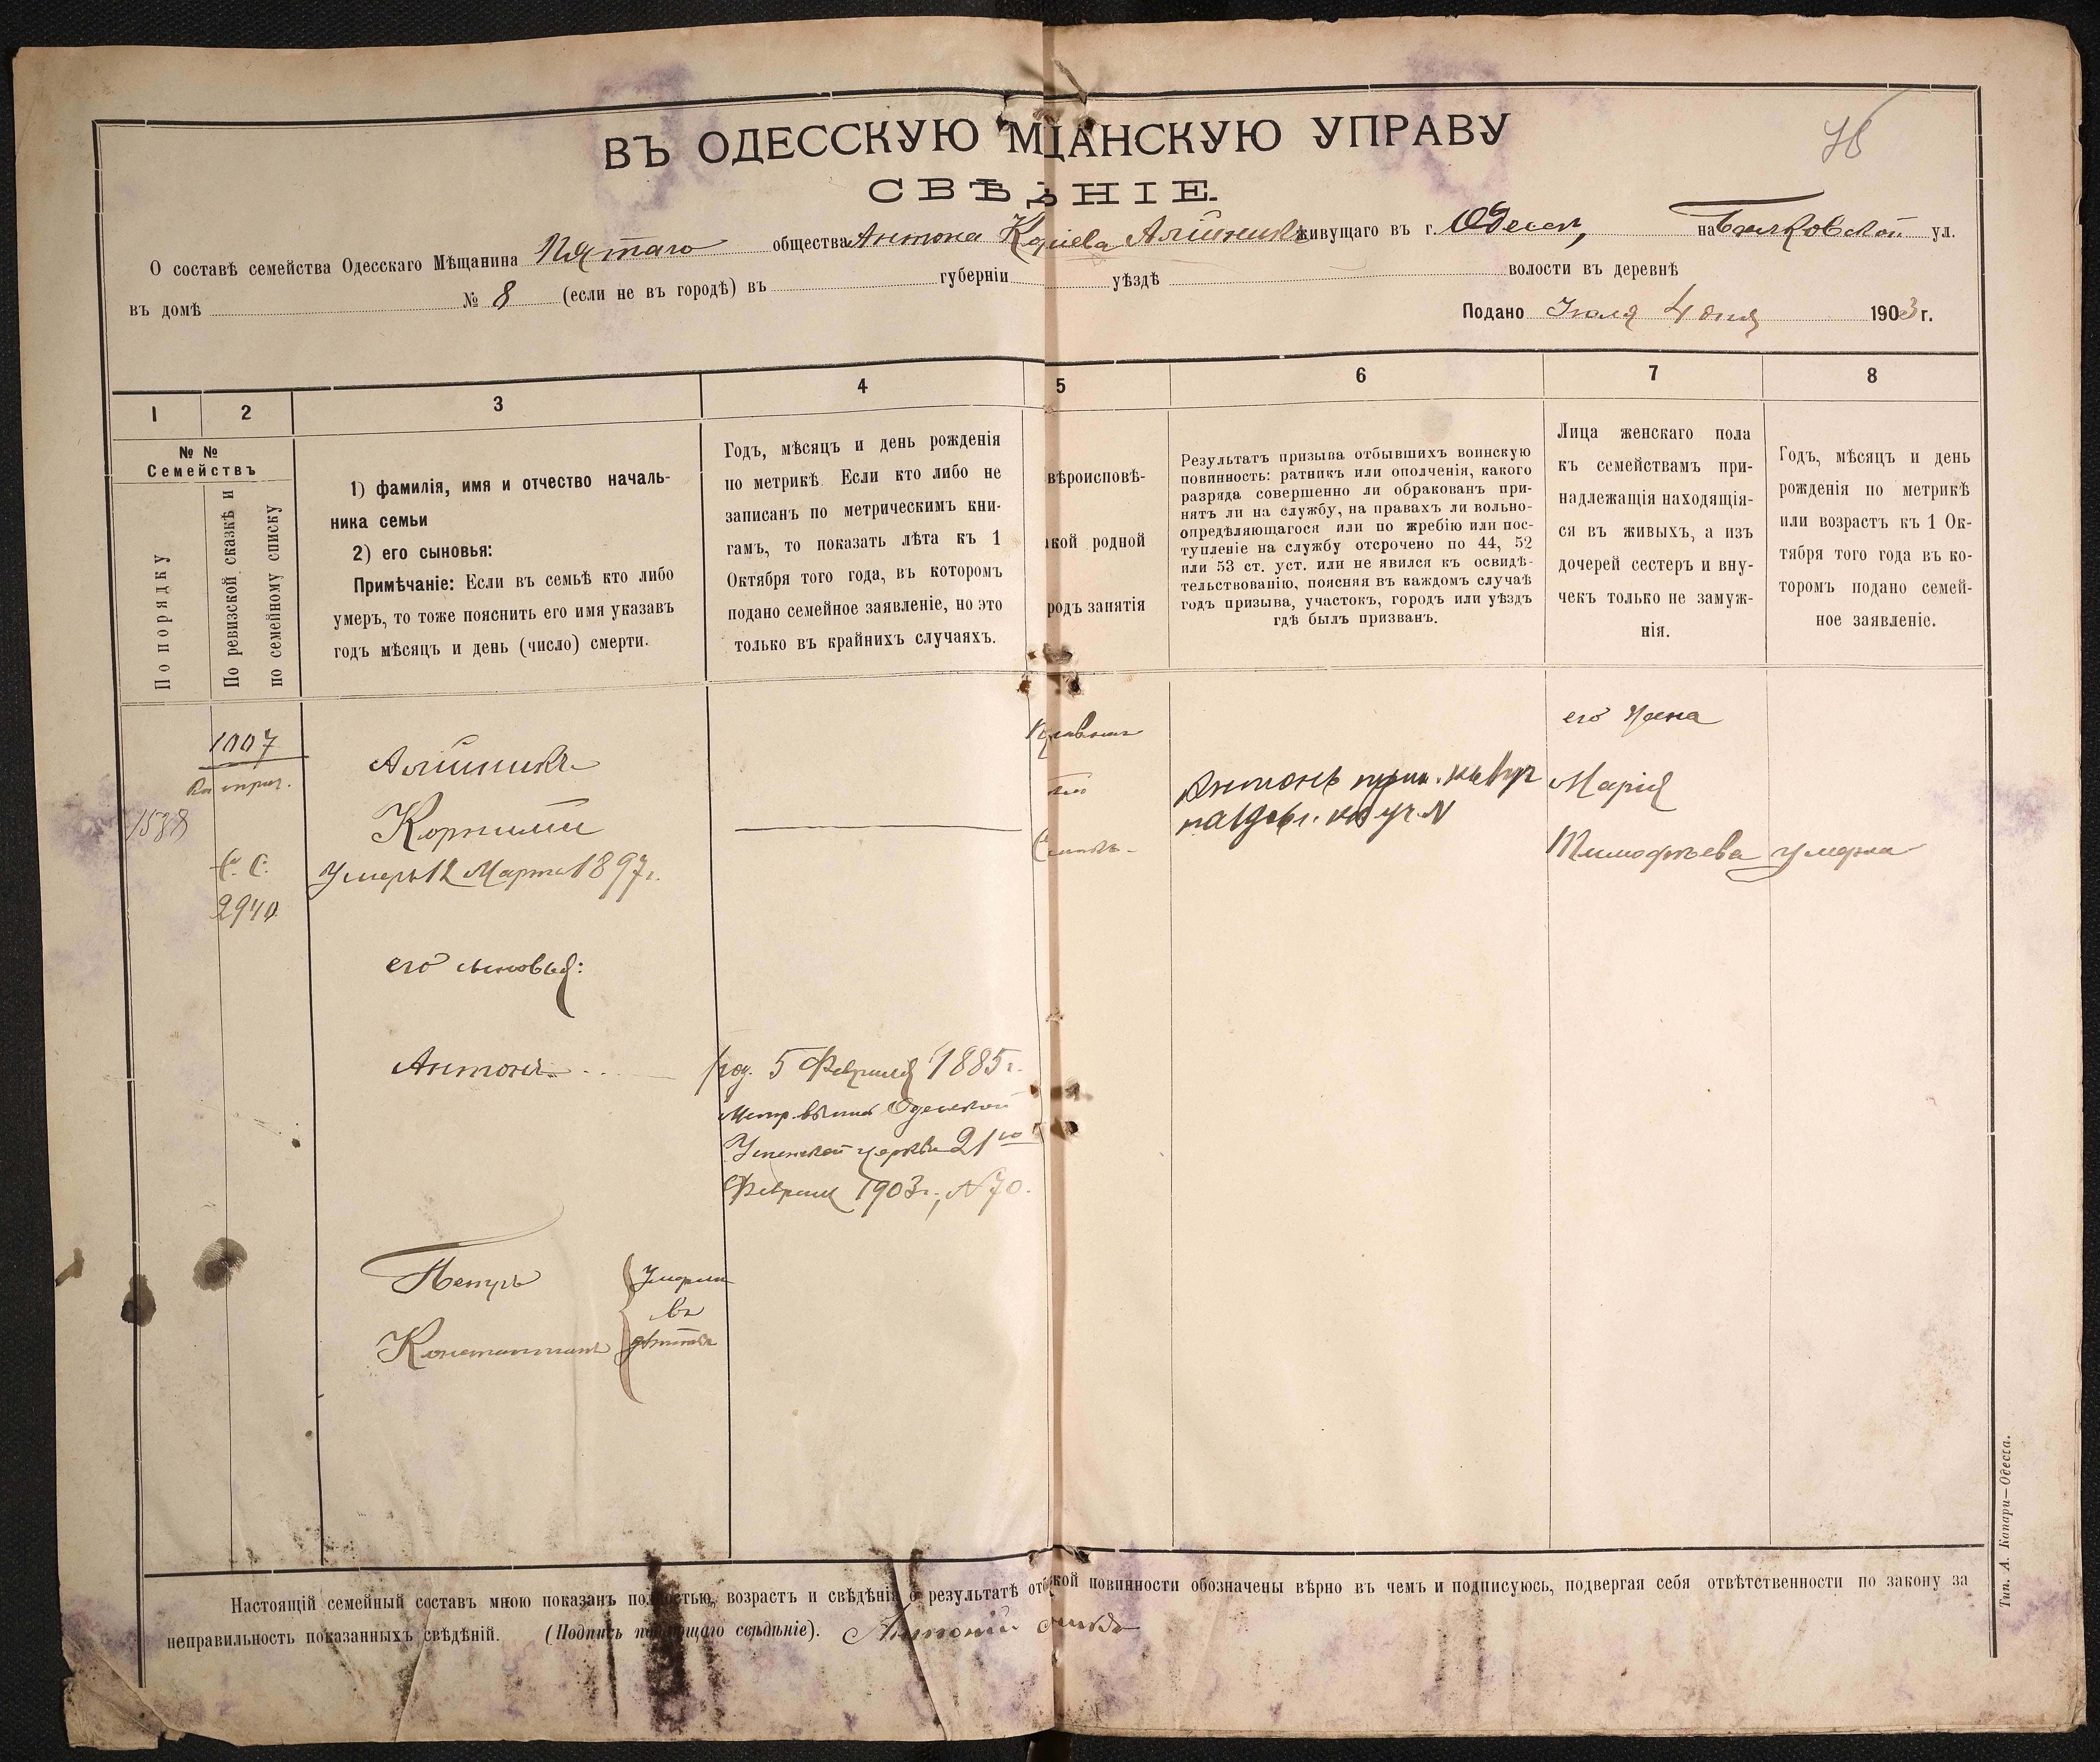 ВЪ ОДЕССКУЮ МѢЩАНСКУЮ УПРАВУ
СВѢДѢНІЕ.
О составѣ семейства Одесскаго Мѣщанина Пятаго общества Антона живущаго въ г. Одессѣ, на Балковской ул.
въ домѣ № 8 (если не въ городѣ) въ губерніи уѣздѣ волости въ деревнѣ
Подано Іюля 4 дня 1903 г.
1 2 3 4 5 6 7 8
№ №
Семействъ
По порядку
По ревизской сказкѣ и
по семейному списку
1) фамилія, имя и отчество началь-
ника семьи
2) его сыновья:
Примѣчаніе: Если въ семьѣ кто либо
умеръ, то тоже пояснить его имя указавъ
годъ мѣсяцъ и день (число) смерти.
Годъ, мѣсяцъ и день рожденія
по метрикѣ. Если кто либо не
записанъ по метрическимъ кни-
гамъ, то показать лѣта къ 1
Октября того года, въ которомъ
подано семейное заявленіе, но это
только въ крайнихъ случаяхъ.
вѣроисповѣ-
кой родной
родъ занятія
Результатъ призыва отбывшихъ воинскую
повинность: ратникъ или ополченія, какого
разряда совершенно ли обракованъ при-
нятъ ли на службу, на правахъ ли вольно-
опредѣляющагося или по жребію или пос-
тупленіе на службу отсрочено по 44, 52
или 53 ст. уст. или не явился къ освидѣ-
тельствованію, поясняя въ каждомъ случаѣ
годъ призыва, участокъ, городъ или уѣздъ
гдѣ былъ призванъ.
Лица женскаго пола
къ семействамъ при-
надлежащія находящія-
ся въ живыхъ, а изъ
дочерей сестеръ и вну-
чекъ только не замуж-
нія.
Годъ, мѣсяцъ и день
рожденія по метрикѣ
или возрастъ къ 1 Ок-
тября того года въ ко-
торомъ подано семей-
ное заявленіе.
1007
С. С.
2940
Корнилій
Умеръ 12 Марта 1897 г.
его сыновья:
Антонъ
род. 5 Февраля 1885 г.
Метр. выпись Одесской
Успенской церкви 21го
Февраля 1903 г., № 70.
Петръ
Константинъ
Умерли
въ
дѣтствѣ
Антонъ
его жена
Марія
Тимофѣева умерла
Настоящій семейный составъ мною показанъ полностью, возрастъ и свѣдѣнія о результатѣ отб кой повинности обозначены вѣрно въ чемъ и подписуюсь, подвергая себя отвѣтственности по закону за
неправильность показанныхъ свѣдѣній. (Подпись подающаго свѣдѣніе). Антоній
Тип. А. Копари—Одесса.